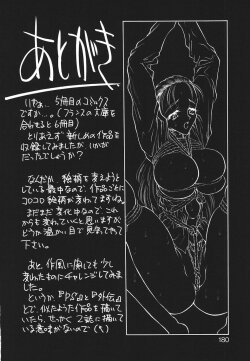 あとがき
いやぁ…5冊目のコミックス
ですか…。(フランスの文庫を
合わせると6冊目)
とりあえず新しめの作品を
収録してみましたが、いかが
だったでしょうか?
なんだか、絵柄を変えようと
している最中なので、作品ごとに
コロコロ絵柄が変わってますね。
まだまだ変化中なので、これ
からも変わっていくと思いますが
どうか温かい目で見守ってやって
下さい。
あと、作風に関しても少し
変わったものにチャレンジしてみま
した。
というか
で、似たような作品を描いて
いたら、せっかく2誌に描いて
いる意味がないので(笑)
180